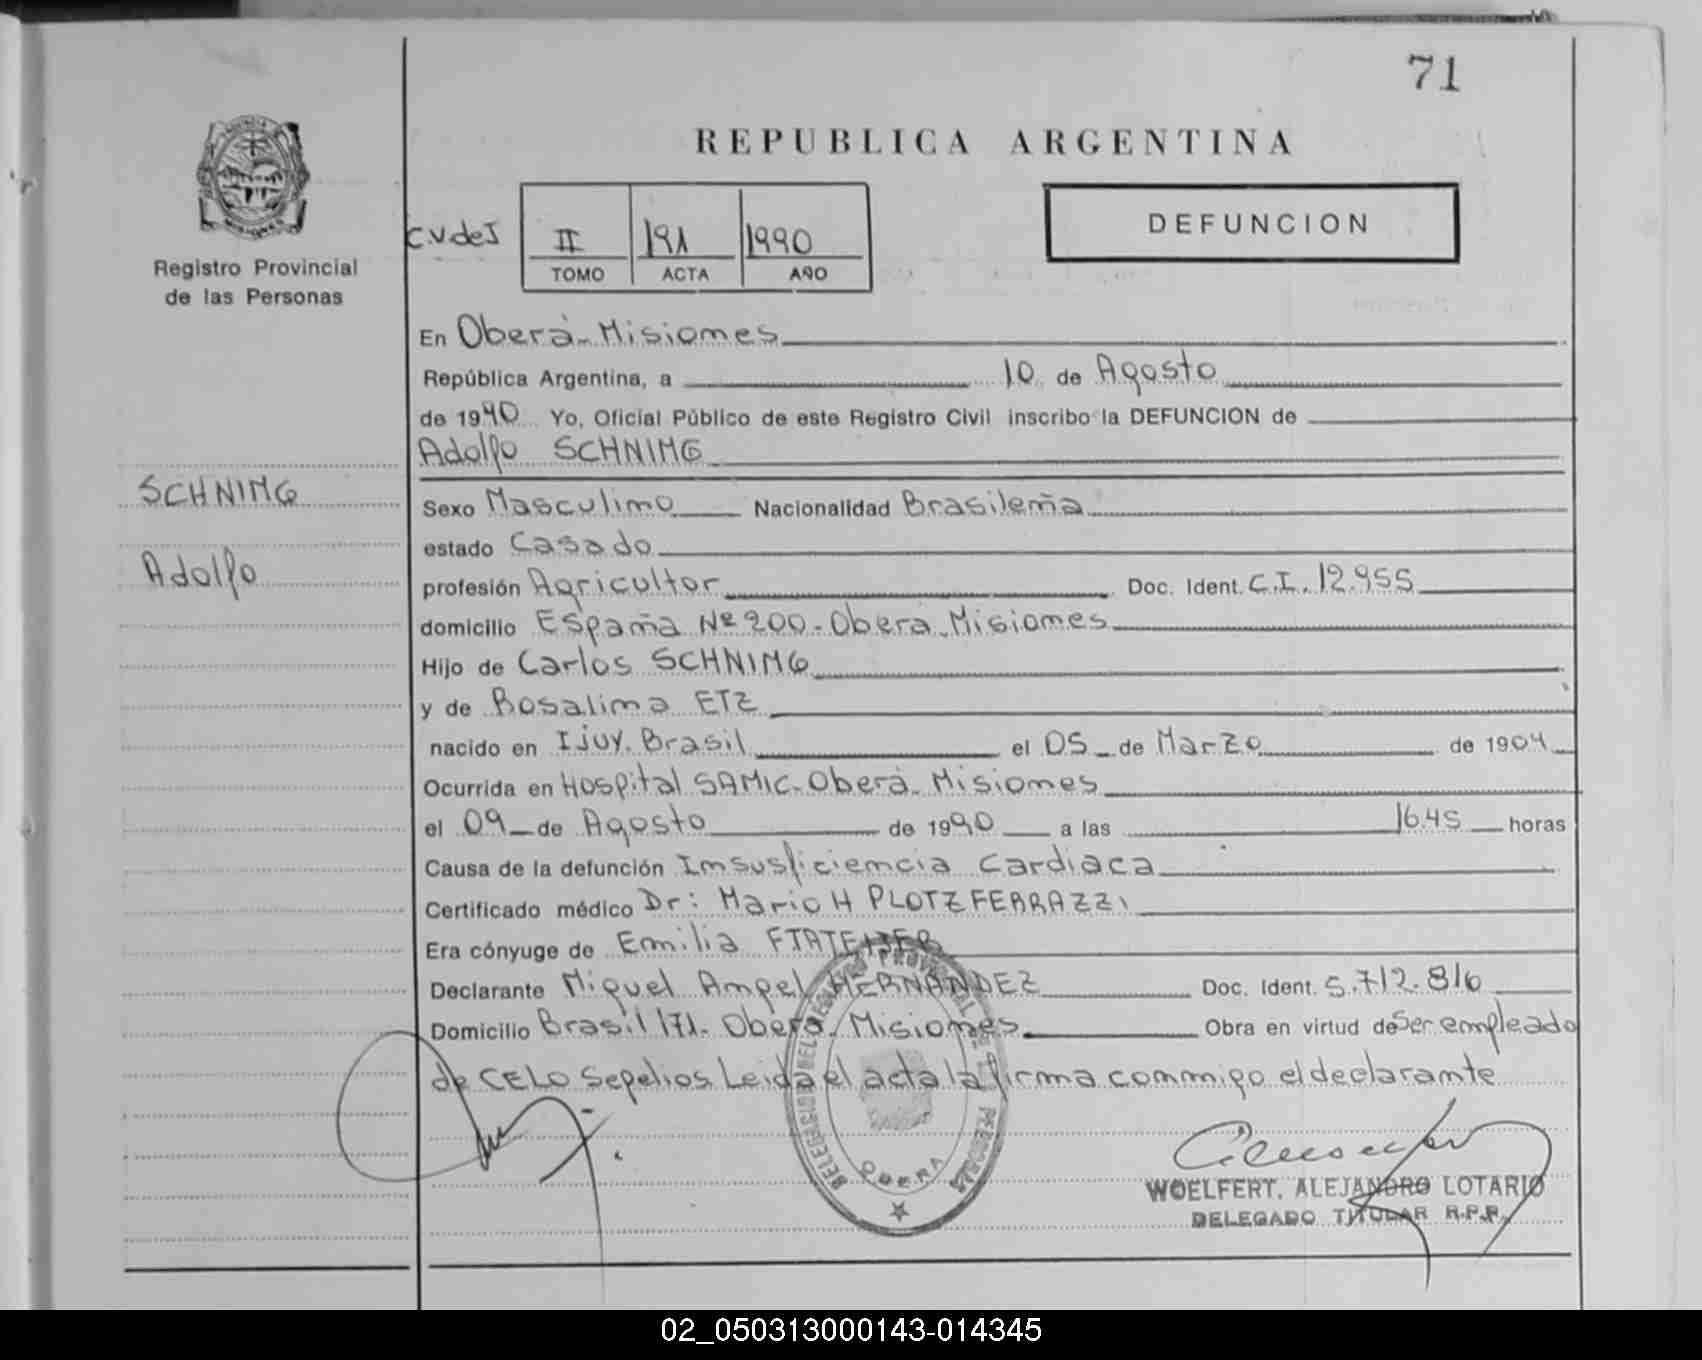 71
REPUBLICA ARGENTINA
DEFUNCION
C.V.deI
II 191 1990
TOMO ACTA AÑO
Registro Provincial
de las Personas
En Oberá-Misiones
República Argentina, a 10 de Agosto
de 1990 Yo, Oficial Público de este Registro Civil inscribo la DEFUNCION de
Adolfo SCHNING
SCHNING
Adolfo
Sexo Masculino Nacionalidad Brasileña
estado Casado
profesión Agricultor Doc. Ident. C.I. 12.955
domicilio España Nº 200-Oberá-Misiones
Hijo de Carlos SCHNING
y de Rosalina ETZ
nacido en Ijuy. Brasil el 05 de Marzo de 1904
Ocurrida en Hospital SAMIC-Oberá-Misiones
el 09 de Agosto de 1990 a las 16.45 horas
Causa de la defunción Insuficiencia Cardiaca
Certificado médico Dr: Mario H PLOTZ FERRAZZI
Era cónyuge de Emilia
Declarante Miguel Angel HERNANDEZ Doc. Ident. 5.712.816
Domicilio Brasil 171- Oberá-Misiones Obra en virtud de Ser empleado
de CELO Sepelios. Leida el acta la firma conmigo el declarante
DELEGACION DEL REGISTRO PROVINCIAL DE LAS PERSONAS
OBERA
WOELFERT, ALEJANDRO LOTARIO
DELEGADO TITULAR R.P.P.
02_050313000143-014345